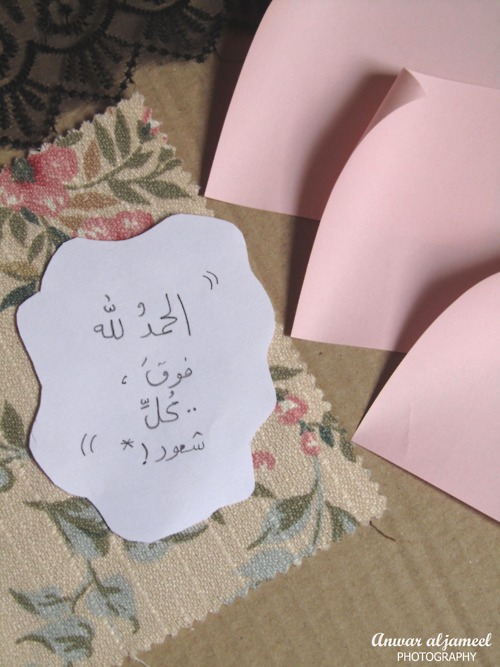 ((
الحمدُ لله
فوقَ ،
كُلِّ ..
شعور ! *
))
Anwar aljameel
PHOTOGRAPHY